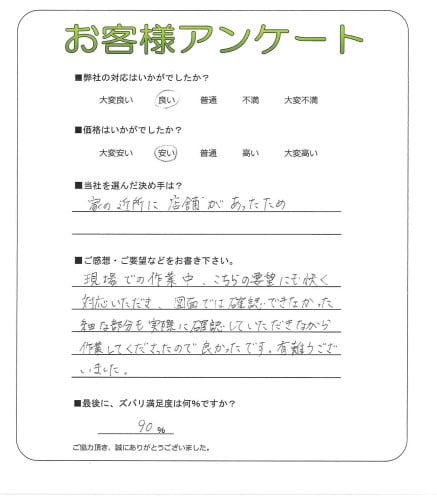 お客様アンケート
■弊社の対応はいかがでしたか？
大変良い 良い 普通 不満 大変不満
■価格はいかがでしたか？
大変安い 安い 普通 高い 大変高い
■当社を選んだ決め手は？
家の近所に店舗があったため
■ご感想・ご要望などをお書き下さい。
現場での作業中、こちらの要望にも快く
対応いただき、図面では確認できなかった
細な部分も実際に確認していただきながら
作業してくださったので良かったです。有難うござ
いました。
■最後に、ズバリ満足度は何%ですか？
90 %
ご協力頂き、誠にありがとうございました。